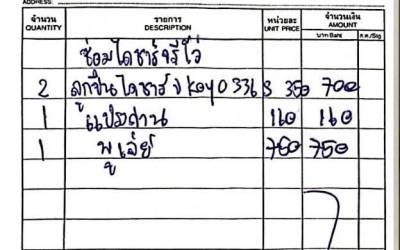 ADDRESS:
จำนวน รายการ หน่วยละ จำนวนเงิน
QUANTITY DESCRIPTION UNIT PRICE AMOUNT
บาท Baht ส.ต./Stg
ซ่อมไดชาร์จรีโว่
2 ลูกปืนไดชาร์จ Koyo 336 350 700
1 แปรงถ่าน 160 160
1 พูเล่ย์ 750 750